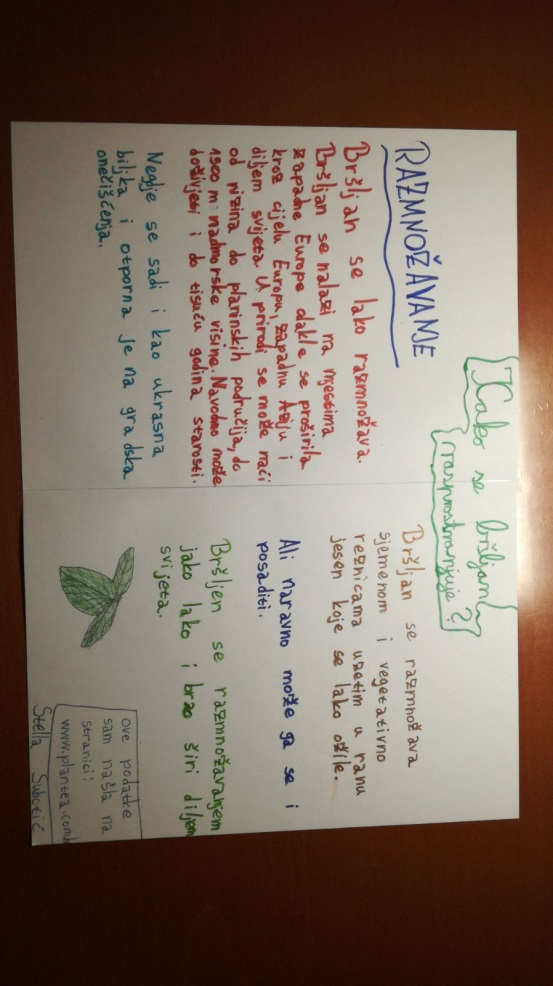 Kako se bršljan
rasprostranjuje?
RAZMNOŽAVANJE
Bršljan se lako razmnožava.
Bršljan se nalazi na mjestima
zapadne Europe odakle se proširila
kroz cijelu Europu, zapadnu Aziju i
diljem svijeta. U prirodi se može naći
od nizina do planinskih područja, do
1900 m nadmorske visine. Navodno može
doživjeti i do tisuću godina starosti.
Negdje se sadi i kao ukrasna
biljka i otporna je na gradska
onečišćenja.
Bršljan se razmnožava
sjemenom i vegetativno
reznicama uzetim u ranu
jesen koje se lako ožile.
Ali naravno može ga se i
posaditi.
Bršljen se razmnožavanjem
jako lako i brzo širi diljem
svijeta.
ove podatke
sam našla na
stranici:
www.plantea.com
Stella Subotić